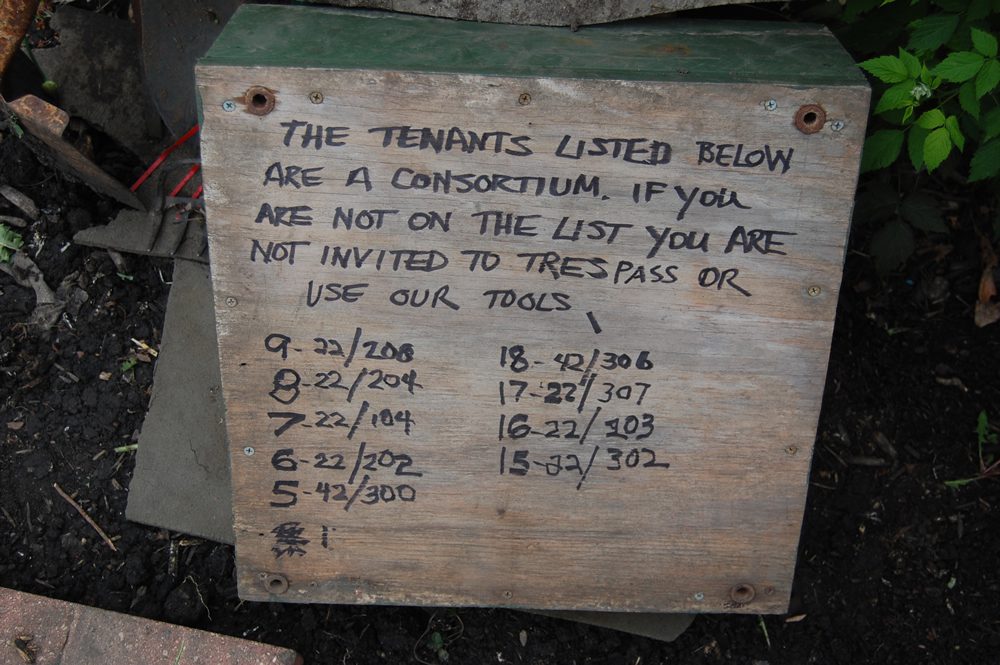 THE TENANTS LISTED BELOW
ARE A CONSORTIUM. IF YOU
ARE NOT ON THE LIST YOU ARE
NOT INVITED TO TRESPASS OR
USE OUR TOOLS
9-22/208
8-22/204
7-22/104
6-22/202
5-42/300
18-42/306
17-22/307
16-22/203
15-22/302